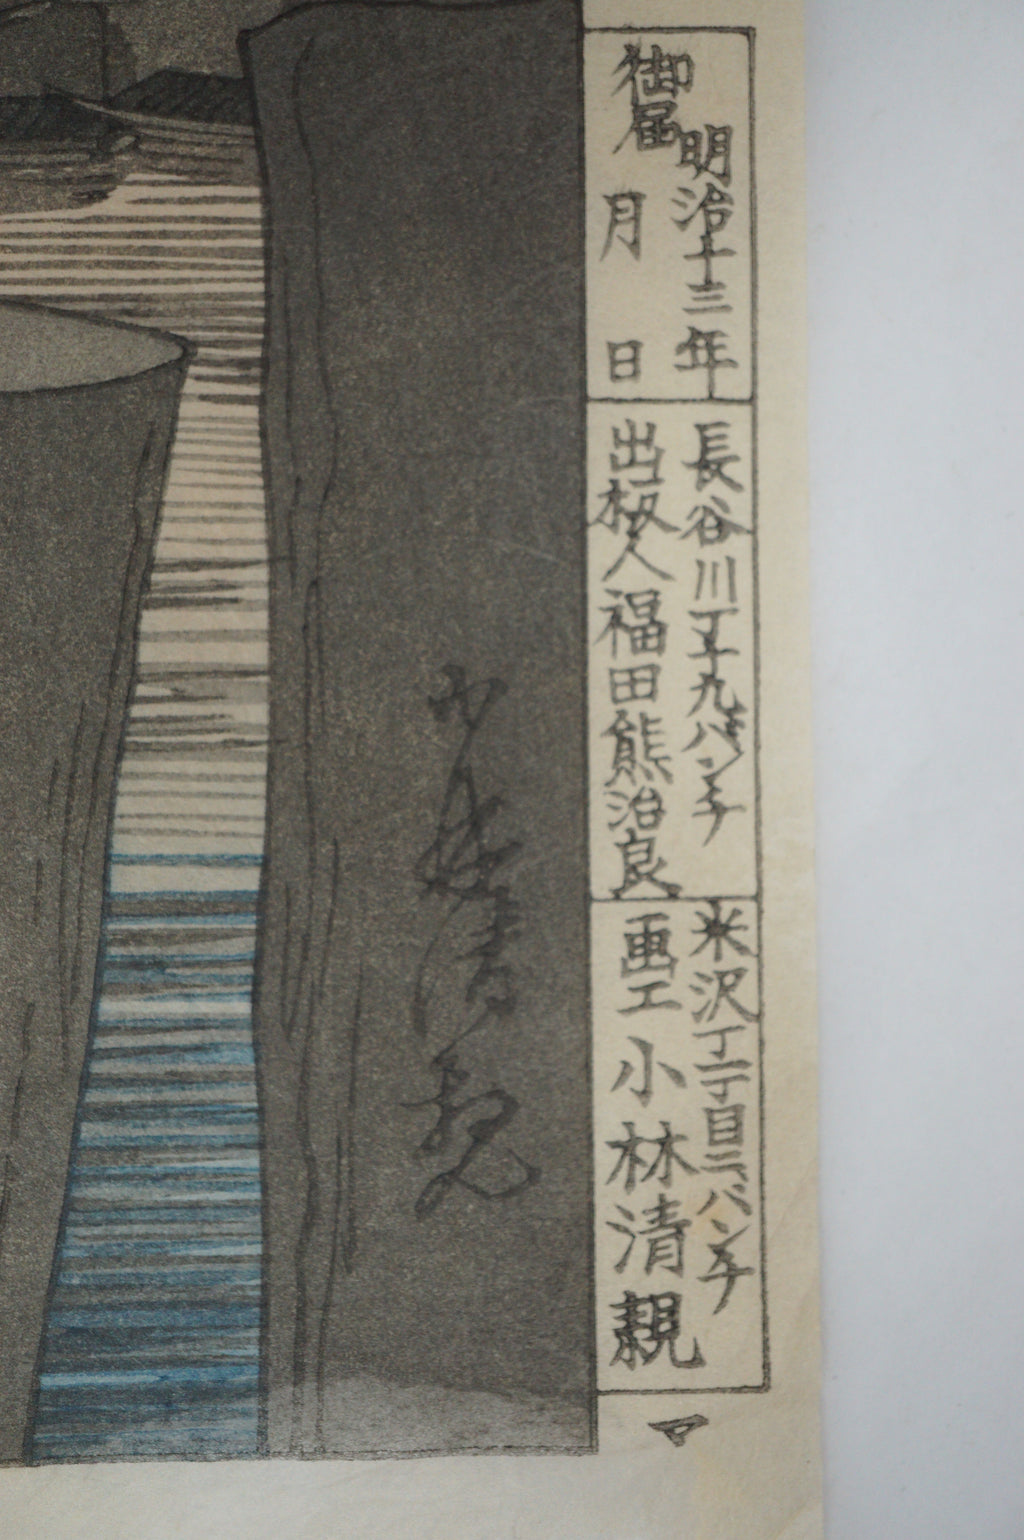 御届
明治十三年
月 日
長谷川丁十九バンチ
出板人 福田熊治良
米沢丁一丁目二バンチ
画工 小林清親
小林清親